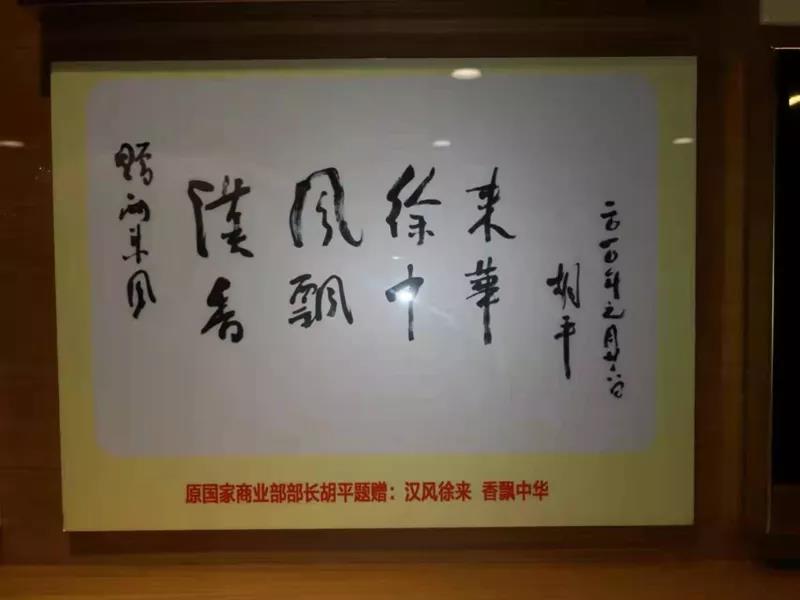 赠两来风
漢风徐来
香飘中華
胡平
二〇一〇年元月廿六日
原国家商业部部长胡平题赠：汉风徐来 香飘中华